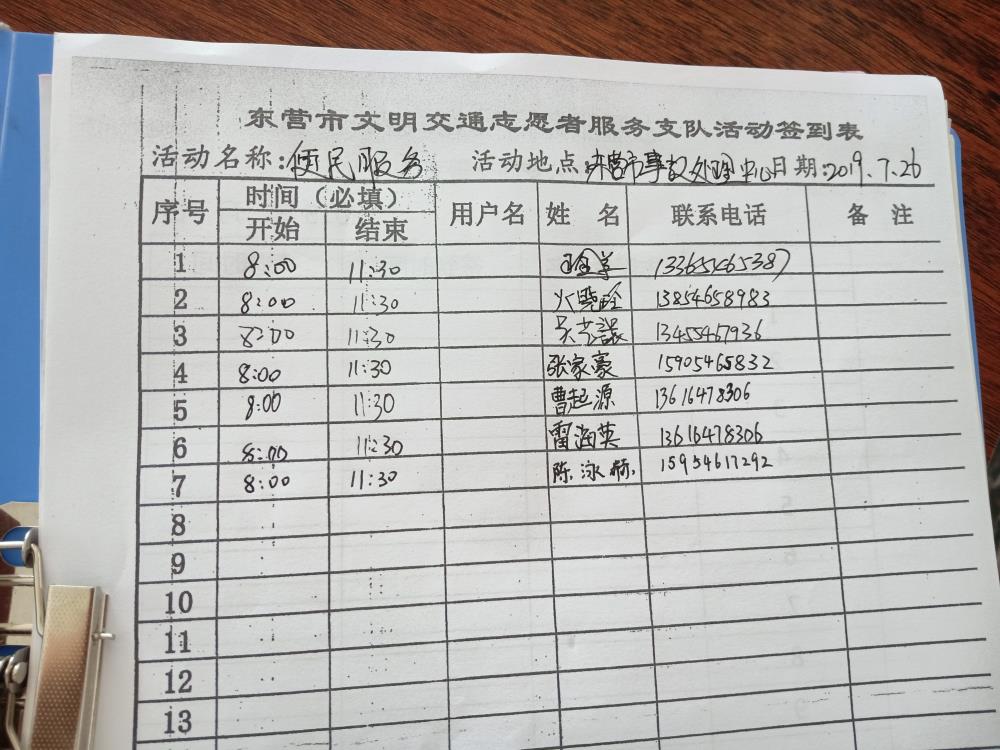 东营市文明交通志愿者服务支队活动签到表
活动名称:便民服务 活动地点:东营市事故处理中心 日期:2019.7.26
序号 时间（必填） 用户名 姓 名 联系电话 备 注
开始 结束
1 8:00 11:30 13365465387
2 8:00 11:30 13854658983
3 8:00 11:30 13455467936
4 8:00 11:30 张家豪 15905465832
5 8:00 11:30 曹起源 13616478306
6 8:00 11:30 雷海英 13616478306
7 8:00 11:30 陈泳 15954617292
8
9
10
11
12
13